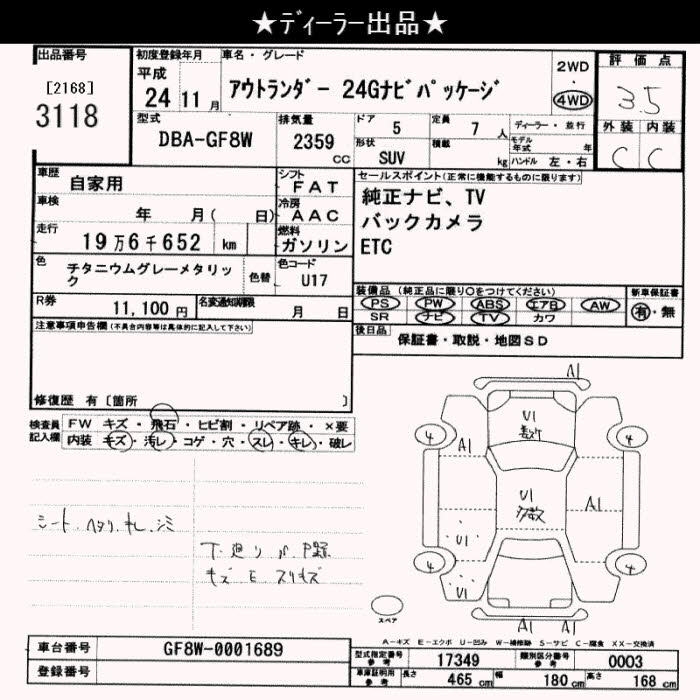 ★ディーラー出品★
出品番号
[2168]
3118
初度登録年月
平成
24 11 月
車名・グレード
アウトランダー 24Gナビパッケージ
2WD
・
4WD
評価点
3.5
外装 内装
C C
型式
DBA-GF8W
排気量
2359
cc
ドア 5
定員 7 人
形状 SUV
積載 kg
ディーラー・並行
モデル年式 年
ハンドル 左・右
車歴 自家用
車検 年 月( 日)
走行 19万6千652 km
色 チタニウムグレーメタリック
色替
シフト FAT
冷房 AAC
燃料 ガソリン
色コード U17
セールスポイント(正常に機能するものに限ります)
純正ナビ、TV
バックカメラ
ETC
R券 11,100 円
名変通知期限 月 日
装備品(純正品に限り○をつけてください)
PS PW ABS エアB AW
SR ナビ TV カワ
新車保証書
有・無
後日品 保証書・取説・地図SD
注意事項申告欄(不具合内容等は具体的に記入して下さい)
修復歴 有[箇所 ]
検査員記入欄
FW キズ・飛石・ヒビ割・リペア跡・×要
内装 キズ・汚レ・コゲ・穴・スレ・キレ・破レ
シート.ヘタリ.キレ.シミ
キズ E スリキズ
A1
U1
4 4
A1
U1
多数
A1
U1
4 4
U1
A1 A1
スペア
A-キズ E-エクボ U-凹み W-補修跡 S-サビ C-腐食 XX-交換済
車台番号 GF8W-0001689
登録番号
型式指定番号 参考 17349
類別区分番号 参考 0003
車庫証明用 参考
長さ 465 cm
幅 180 cm
高さ 168 cm